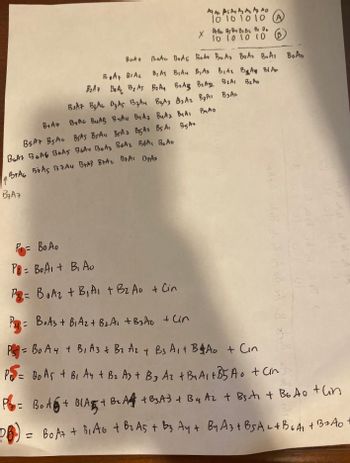 A7 A6 A5 A4 A3 A2 A1 A0
10 10 10 10 (A)
B7 B6 B5 B4 B3 B2 B1 B0
x 10 10 10 10 (B)
B0A7 B0A6 B0A5 B0A4 B0A3 B0A2 B0A1 B0A0
B1A7 B1A6 B1A5 B1A4 B1A3 B1A2 B1A1 B1A0
B2A7 B2A6 B2A5 B2A4 B2A3 B2A2 B2A1 B2A0
B3A7 B3A6 B3A5 B3A4 B3A3 B3A2 B3A1 B3A0
B4A7 B4A6 B4A5 B4A4 B4A3 B4A2 B4A1 B4A0
B5A7 B5A6 B5A5 B5A4 B5A3 B5A2 B5A1 B5A0
B6A7 B6A6 B6A5 B6A4 B6A3 B6A2 B6A1 B6A0
B7A6 B7A5 B7A4 B7A3 B7A2 B7A1 B7A0
B7A7
= B0A0
= B0A1 + B1A0
= B0A2 + B1A1 + B2A0 + Cin
= B0A3 + B1A2 + B2A1 + B3A0 + Cin
= B0A4 + B1A3 + B2A2 + B3A1 + B4A0 + Cin
= B0A5 + B1A4 + B2A3 + B3A2 + B4A1 + B5A0 + Cin
P6 = B0A6 + B1A5 + B2A4 + B3A3 + B4A2 + B5A1 + B6A0 + Cin
= B0A7 + B1A6 + B2A5 + B3A4 + B4A3 + B5A2 + B6A1 + B7A0 +